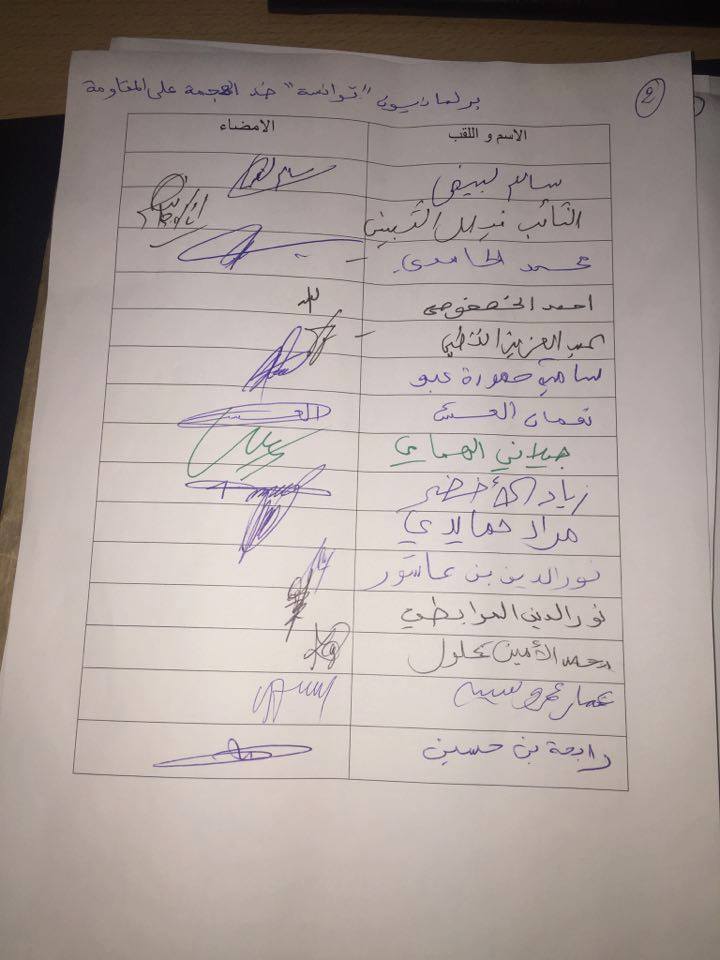 2
برلمانيون "توانسة" ضد الهجمة على المقاومة
الاسم و اللقب الامضاء
سالم لبيض
النائب فيصل التبيني
محمد الحامدي
احمد الخصخوصي
عبد العزيز القطي
سامية حمودة عبو
نعمان العش
جيلاني الهمامي
زياد الأخضر
مراد حمايدي
نورالدين بن عاشور
نورالدين المرابطي
محمد الأمين كحلول
عمار عمروسية
رابحة بن حسين